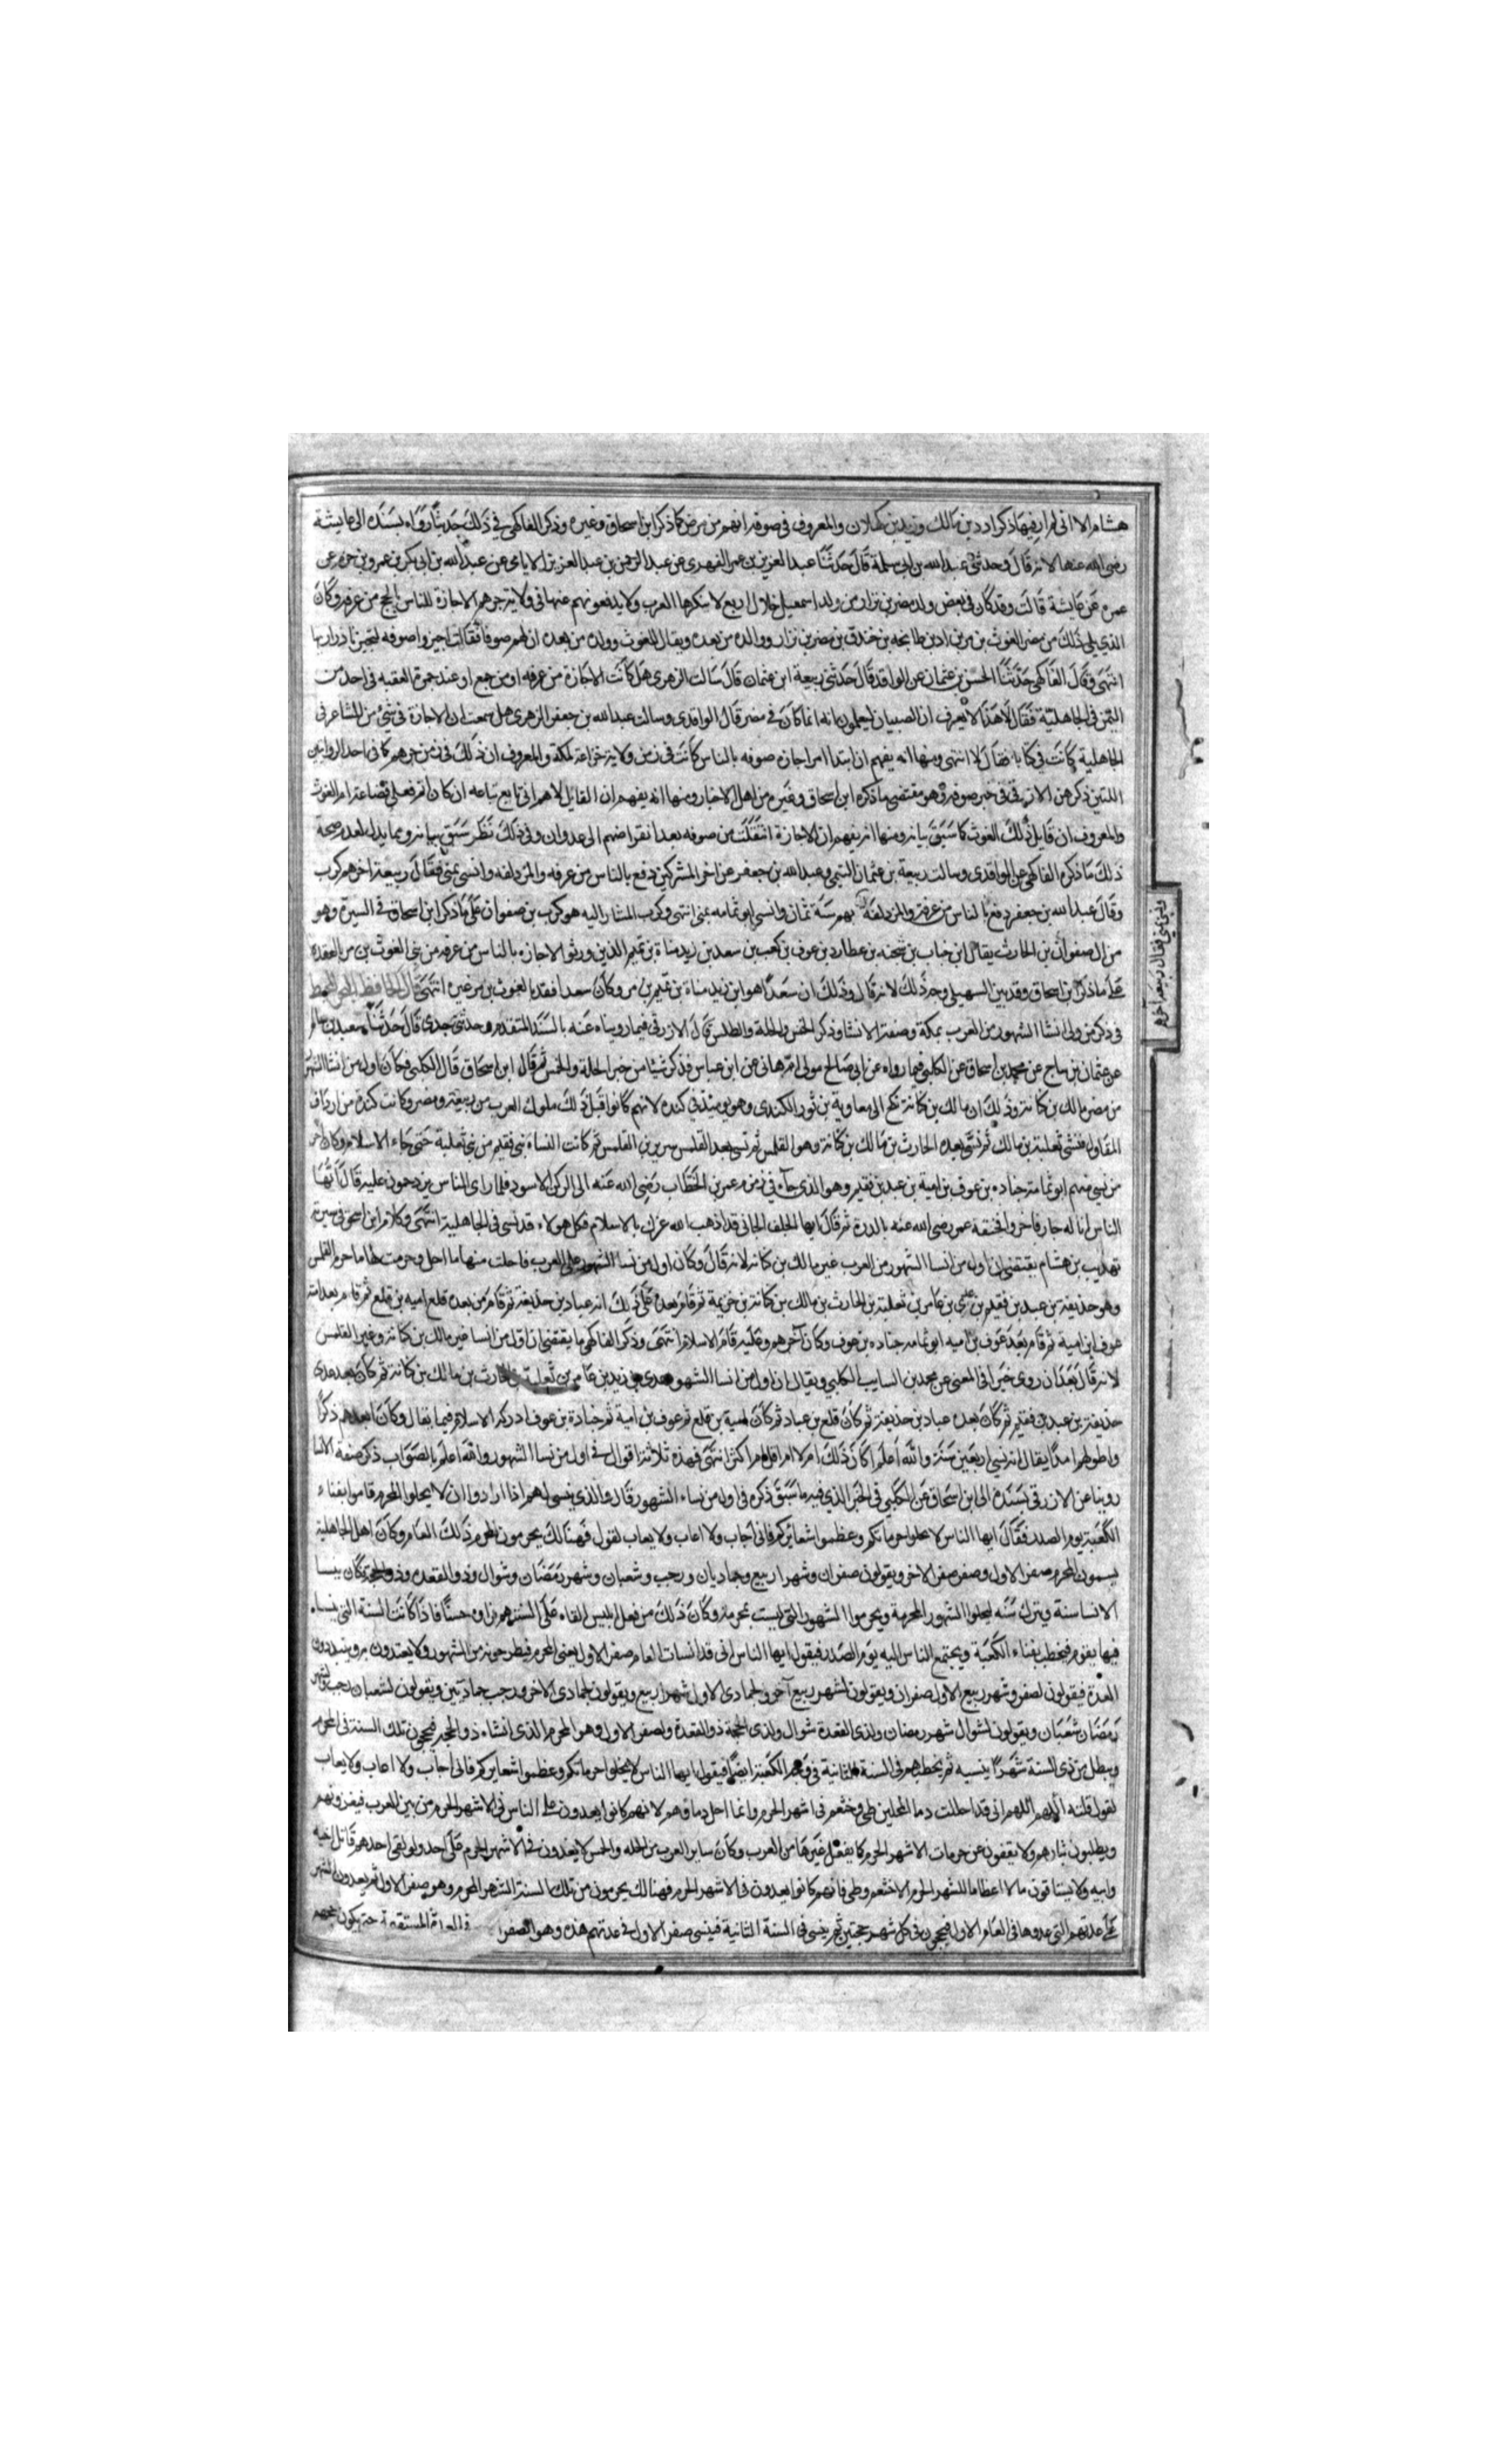 هشام الا اني لم ار فيها ذكر ادد بن مالك وزيد بن كهلان والمعروف في صوفه انهم من مضر كما ذكر ابن اسحاق وغيره وذكر الفاكهي في ذلك حديثا رواه بسنده الى عايشة
رضي الله عنها لانه قال وحدثني عبد الله بن ابي سلمة قال حدثنا عبد العزيز بن عمر الفهري عن عبد الرحمن بن عبد العزيز الامامي عن عبد الله بن ابي بكر بن عمرو بن حزم عن
عمره عن عايشة قالت وقد كان في بعض ولد مضر بن نزار من ولد اسمعيل خلال اربع لا ينكرها العرب ولا يدفعونهم عنها في ولاية جرهم الاجازة للناس بالحج من عرفه وكان
الذي يلي ذلك من مضر الغوث بن مر بن اد بن طابخه بن خندق بن مضر بن نزار وولده من بعده ويقال للغوث وولده من بعده ان لهم صوفا فقالت اجيروا صوفه
انتهى وقال الفاكهي حدثنا الحسن بن عثمان عن الواقدي قال حدثني ربيعة ابن عثمان قال سالت الزهري هل كانت الاجازة من عرفه او من جمع او عند جمرة العقبه في احد من
اليمن في الجاهلية فقال لا هذا لا يعرف ان الصبيان ليعلمون انه انما كان في مضر قال الواقدي وسالت عبد الله بن جعفر الزهري هل سمعت ان الاجازة في شيء من المشاعر في
الجاهلية كانت في كنانة فقال لا انتهى ومنها انه يفهم ان ابتدا امر اجازه صوفه بالناس كانت في زمن ولاية خزاعة لمكة والمعروف ان ذلك في زمن جرهم كما في احد الروايتين
اللتين ذكرهن الازرقي في خبر صوفه وهو مقتضى ما ذكره ابن اسحاق وغيره من اهل الاخبار ومنها انه يفهم ان القايل لاهم اني تابع تباعه ان كان اثم فعلى قضاعة ام الغوث
والمعروف ان قايل ذلك الغوث كما سبق بيانه ومنها انه يفهم ان الاجازة انتقلت من صوفه بعد انقراضهم الى عدوان وفي ذلك نظر سبق بيانه ومما يدل لعدم صحة
ذلك ما ذكره الفاكهي عن الواقدي وسالت ربيعة بن عثمان التيمي وعبد الله بن جعفر عن اخر المشركين دفع بالناس من عرفه والمزدلفه وانسى بمنى فقال ربيعة اخرهم كرب
وقال عبد الله بن جعفر دفع بالناس من عرفة والمزدلفة بهم سنة ثمان وانسى ابو ثمامه بمنى انتهى وكرب المشار اليه هو كرب بن صفوان على ما ذكر ابن اسحاق في السيرة وهو
من ال صفوان بن الحارث يقال ابن خباب بن شحنه بن عطارد بن عوف بن كعب بن سعد بن زيد مناة بن تميم الذين ورثوا الاجازه بالناس من عرفه من بني الغوث بن مر بالقعدد
على ما ذكر ابن اسحاق وقد بين السهيلي وجه ذلك لانه قال وذلك ان سعدا هو ابن زيد مناة بن تميم بن مر وكان سعدا قعد بالغوث بن مر من غيره انتهى قال الحافظ
في ذكر من ولي انشا الشهور من العرب بمكة وصفة الانشا وذكر الحمس والحلة والطلس قال الازرقي فيما رويناه عنه بالسند المتقدم وحدثني جدي قال حدثنا سعيد بن سالم
عن عثمان بن ساج عن محمد بن اسحاق عن الكلبي فيما رواه عن ابي صالح مولى ام هاني عن ابن عباس فذكر شيئا من خبر الحلة والحمس ثم قال ابن اسحاق قال الكلبي فكان اول من انشا الشهور
من مضر مالك بن كنانة وذلك ان مالك بن كنانة نكح الى معاوية بن ثور الكندي وهو يومئذ في كنده لانهم كانوا قبل ذلك ملوك العرب من ربيعة ومضر وكانت كندة من ارداف
المقاول فنشي ثعلبة بن مالك ثم نسي بعده الحارث بن مالك بن كنانة وهو القلمس ثم نسي بعد القلمس سرير بن القلمس ثم كانت النساة بني فقيم من بني ثعلبة حتى جاء الاسلام وكان اخر
من نسي منهم ابو ثمامة جناده بن عوف بن امية بن عبد بن فقيم وهو الذي جاء في زمن عمر بن الخطاب رضي الله عنه الى الركن الاسود فلما راى الناس يزدحمون عليه قال ايها
الناس انا له جار فاخروا فخنقه عمر رضي الله عنه بالدرة ثم قال ايها الجلف الجافي قد اذهب الله عزك بالاسلام فكل هولاء قد نسى في الجاهلية انتهى وكلام ابن اسحق في سيرته
تهذيب بن هشام يقتضي ان اول من انسا الشهور من العرب غير مالك بن كنانه لانه قال وكان اول من نسا الشهور على العرب فاحلت منها ما احل وحرمت منها ما حرم القلمس
وهو حذيفة بن عبد بن فقيم بن عدي بن عامر بن ثعلبة بن الحارث بن مالك بن كنانة بن خزيمة ثم قام بعده على ذلك ابنه عباد بن حذيفة ثم قام من بعده قلع اميه بن قلع ثم قام بعد امية
عوف ابن امية ثم قام بعد عوف بن اميه ابو ثمامه جناده بن عوف وكان آخرهم وعليه قام الاسلام انتهى وذكر الفاكهي ما يقتضي ان اول من انسا غير مالك بن كنانة وغير القلمس
لانه قال بعد ان روى خبرا في المعنى عن محمد بن السايب الكلبي ويقال ان اول من انسا الشهور عدي بن زيد بن عامر بن ثعلبة بن الحارث بن مالك بن كنانة ثم كان بعد عدي
حذيفة بن عبد بن فقيم ثم كان بعده عباد بن حذيفة ثم كان قلع بن عباد ثم كان امية بن قلع ثم عوف بن امية ثم جنادة بن عوف ادركه الاسلام فيما يقال وكان ابعدهم ذكرا
واطولهم امدا يقال انه نسي اربعين سنة والله اعلم اكان ذلك ام لا ام اقل ام اكثر انتهى فهذه ثلاثة اقوال في اول من نسا الشهور والله اعلم بالصواب ذكر صفة الانسا
روينا عن الازرقي بسنده الى ابن اسحاق عن الكلبي في الخبر الذي فيه ما سبق ذكره في اول من نساء الشهور قال والذي ينسى لهم اذا ارادوا ان لا يحلوا المحرم قاموا بفناء
الكعبة يوم الصدر فقال ايها الناس لا تحلوا حرماتكم وعظموا شعائركم فاني اجاب ولا اعاب ولا يعاب لقول فهنالك يحرمون المحرم ذلك العام وكان اهل الجاهلية
يسمون المحرم صفر الاول وصفر صفر الاخر ويقولون صفران وشهرا ربيع وجماديان ورجب وشعبان وشهر رمضان وشوال وذو القعده وذو الحجة فكان ينسا
الانسا سنة ويترك سنه ليحلوا الشهور المحرمة ويحرموا الشهور التي ليست بمحرمة وكان ذلك من فعل ابليس القاه على السنتهم فراوه حسنا فاذا كانت السنة التي ينساء
فيها يقوم فيخطب بفناء الكعبة ويجتمع الناس اليه يوم الصدر فيقول ايها الناس اني قد انسات العام صفر الاول يعني المحرم فيطرحونه من الشهور ولا يعتدون به ويبتدون
العدة فيقولون لصفر وشهر ربيع الاول صفران ويقولون لشهر ربيع آخر ولجمادى الاول شهرا ربيع ويقولون لجمادى الاخر ورجب جمادتين ويقولون لشعبان رجب ولشهر
رمضان شعبان ويقولون لشوال شهر رمضان ولذي القعدة شوال ولذي الحجة ذو القعدة ولصفر الاول وهو المحرم الذي انشاء ذو الحجه فيحجون تلك السنة في المحرم
ويبطل من ذي السنة شهرا ينسيه ثم يخطبهم في السنة الثانية في وجه الكعبة ايضا فيقول ايها الناس لا تحلوا حرماتكم وعظموا شعايركم فاني اجاب ولا اعاب ولا يعاب
لقول قلته اللهم اني قد احللت دما المحلين طي وخثعم في اشهر الحرم وانما احل دماؤهم لانهم كانوا يعدون على الناس في الاشهر الحرم من بين العرب فيغزونهم
ويطلبون بثارهم ولا يقفون عن حرمات الاشهر الحرم كما يفعل غيرها من العرب وكان ساير العرب من الحله والحمس لا يغدون في الاشهر الحرم على احد ولو لقي احدهم قاتل اخيه
وابيه ولا يستاقون مالا اعظاما للشهر الحرم الا خثعم وطي فانهم كانوا يعدون في الاشهر الحرم فهنالك يحرمون من تلك السنة الشهر المحرم وهو صفر الاول ثم يعدون الشهور
على عدتهم التي عدوها في العام الاول فيحجون في كل شهر حجتين ثم ينسى في السنة الثانية فينسى صفر الاول في عدتهم هذه وهو الصفر